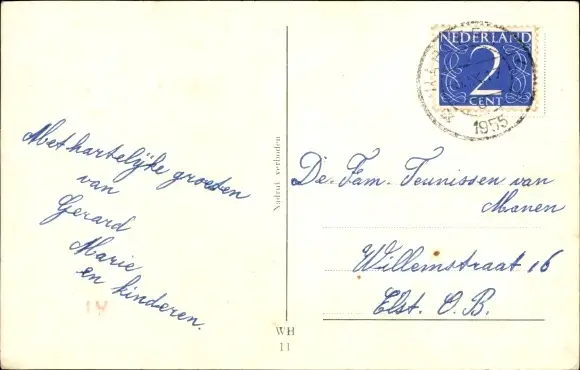 Met hartelijke groeten
van
Gerard
Marie
en kinderen.
Nadruk verboden
WH
11
NEDERLAND
2
CENT
1955
De Fam. Teunissen van
Manen
Willemstraat 16
Elst. O.B.